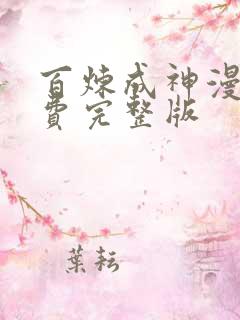 百炼成神漫
费完整版
葉耘